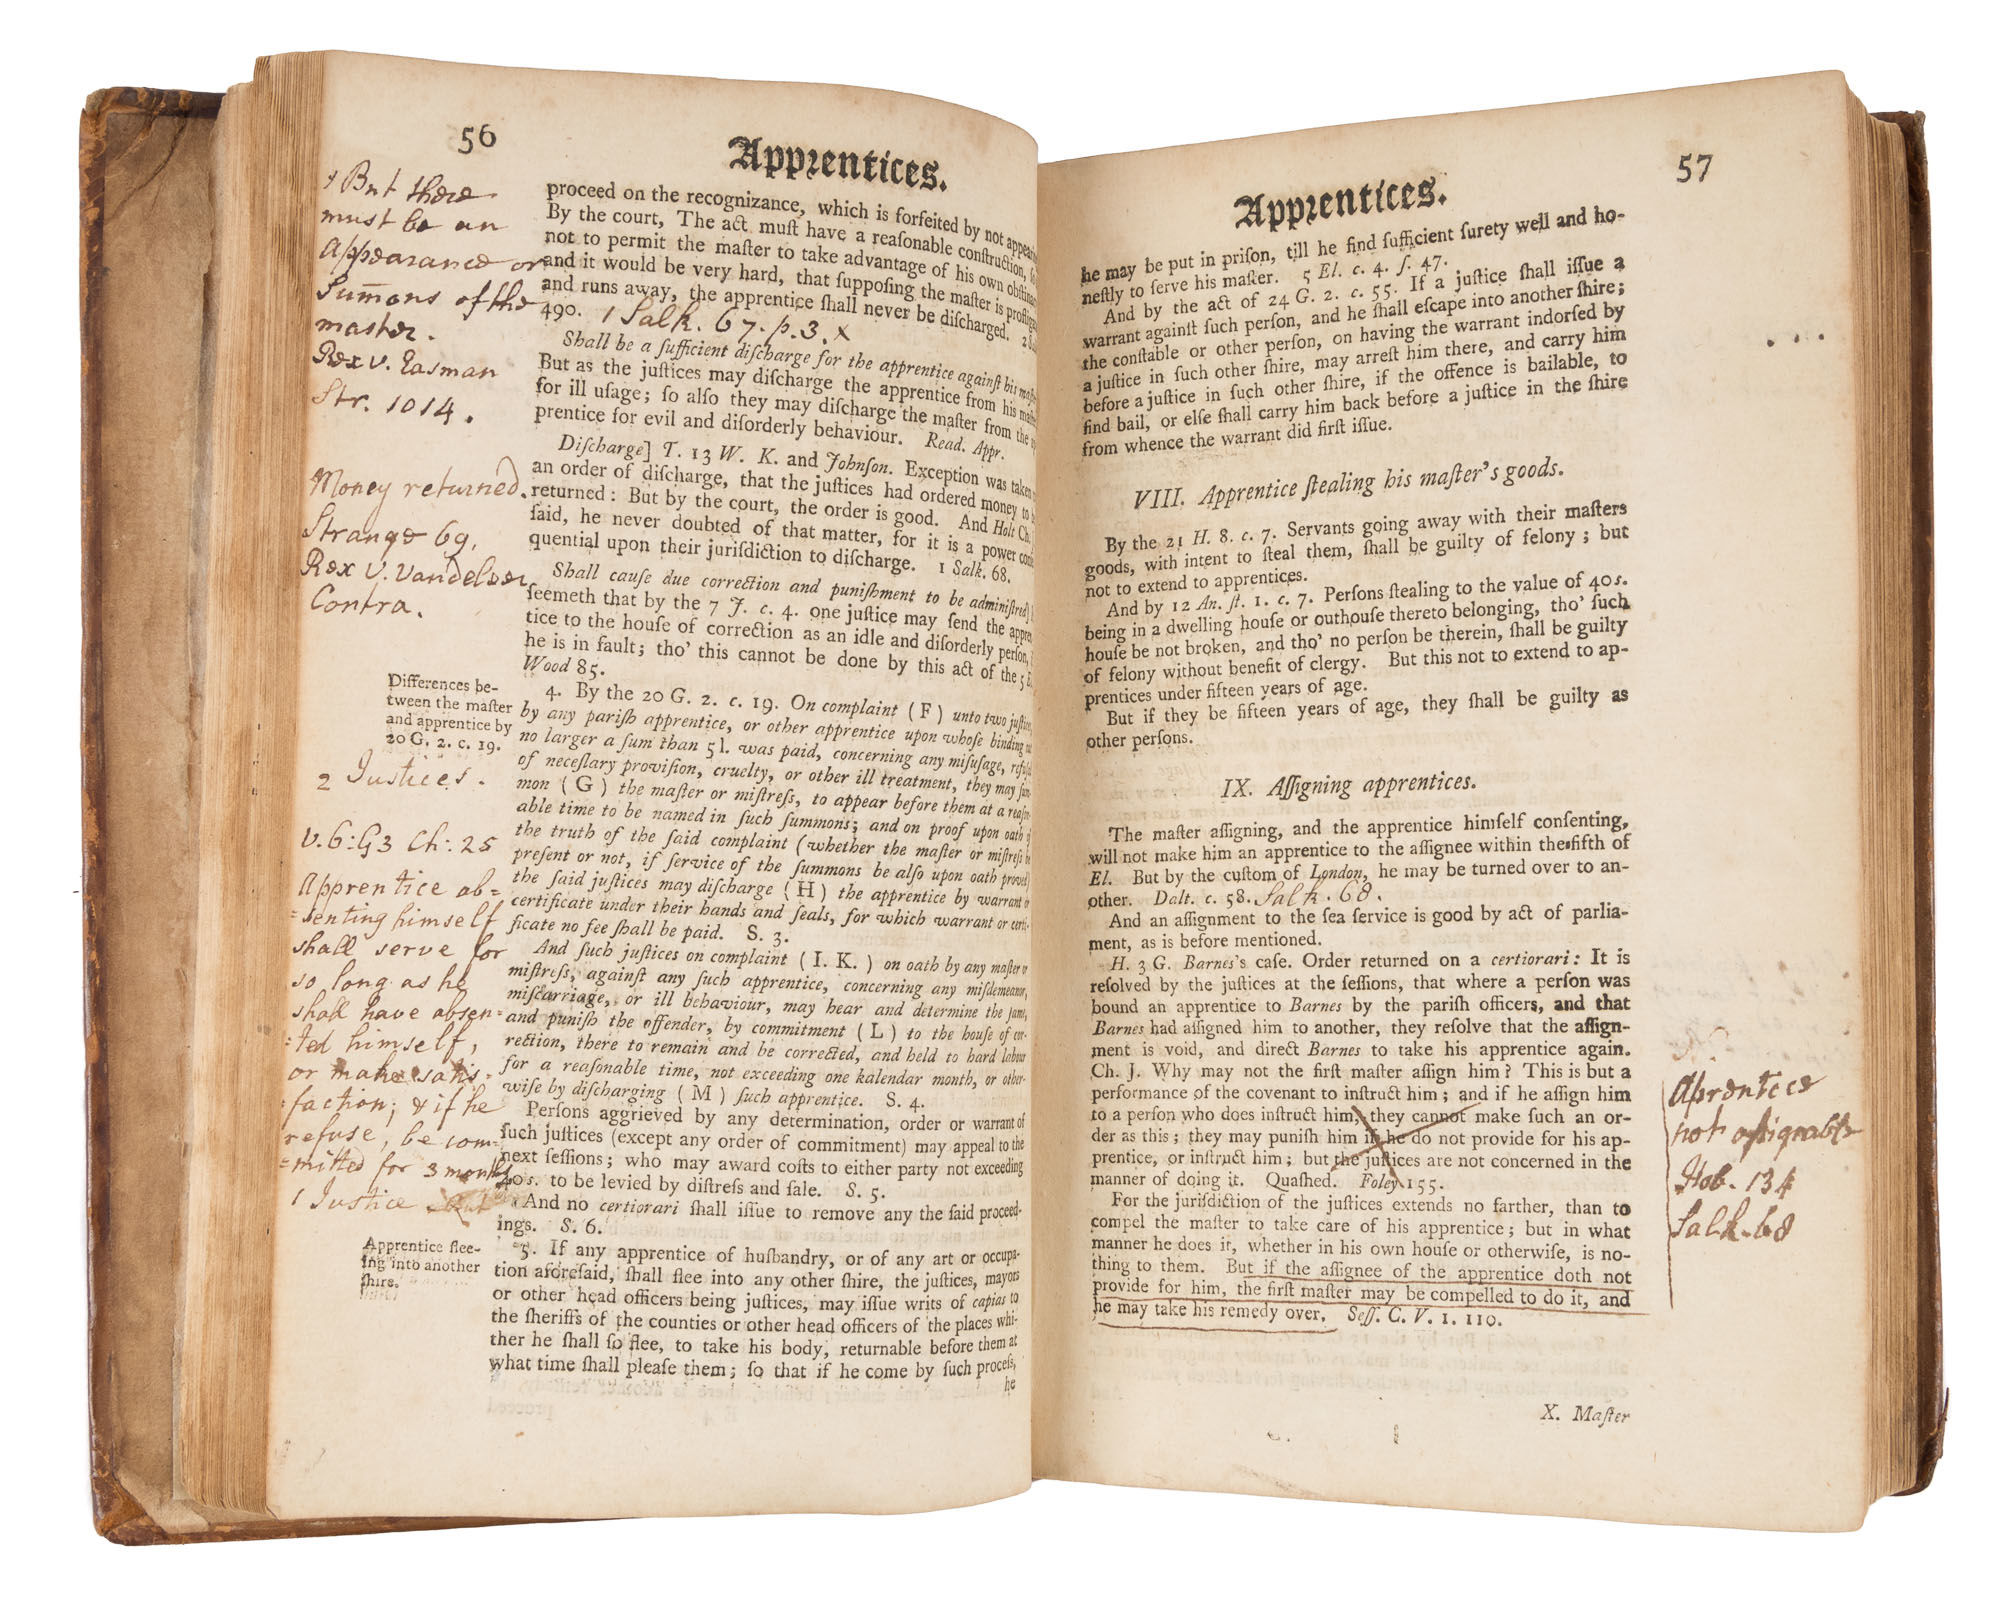 56
Apprentices.
proceed on the recognizance, which is forfeited by not
By the court, The act muſt have a reaſonable conſtruction,
not to permit the maſter to take advantage of his own
and it would be very hard, that ſuppoſing the maſter is
and runs away, the apprentice ſhall never be diſcharged.
490. 1 Salk. 67. p. 3. x
Shall be a ſufficient diſcharge for the apprentice againſt his
But as the juſtices may diſcharge the apprentice from his
for ill uſage; ſo alſo they may diſcharge the maſter from the
prentice for evil and diſorderly behaviour. Read. Appr.
Diſcharge] T. 13 W. K. and Johnſon. Exception was taken
an order of diſcharge, that the juſtices had ordered money to
returned: But by the court, the order is good. And Holt Ch.
ſaid, he never doubted of that matter, for it is a power
quential upon their juriſdiction to diſcharge. 1 Salk. 68.
Shall cauſe due correction and puniſhment to be adminiſtred]
ſeemeth that by the 7 J. c. 4. one juſtice may ſend the
tice to the houſe of correction as an idle and diſorderly perſon,
he is in fault; tho' this cannot be done by this act of the 5
Wood 85.
4. By the 20 G. 2. c. 19. On complaint (F) unto two
by any pariſh apprentice, or other apprentice upon whoſe binding
no larger a ſum than 5 l. was paid, concerning any miſuſage,
of neceſſary proviſion, cruelty, or other ill treatment, they may ſum-
mon (G) the maſter or miſtreſs, to appear before them at a reaſon-
able time to be named in ſuch ſummons; and on proof upon oath of
the truth of the ſaid complaint (whether the maſter or miſtreſs be
preſent or not, if ſervice of the ſummons be alſo upon oath proved)
the ſaid juſtices may diſcharge (H) the apprentice by warrant or
certificate under their hands and ſeals, for which warrant or certi-
ficate no fee ſhall be paid. S. 3.
And ſuch juſtices on complaint (I. K.) on oath by any maſter or
miſtreſs, againſt any ſuch apprentice, concerning any miſdemeanor,
miſcarriage, or ill behaviour, may hear and determine the ſame,
and puniſh the offender, by commitment (L) to the houſe of cor-
rection, there to remain and be corrected, and held to hard labour
for a reaſonable time, not exceeding one kalendar month, or other-
wiſe by diſcharging (M) ſuch apprentice. S. 4.
Perſons aggrieved by any determination, order or warrant of
ſuch juſtices (except any order of commitment) may appeal to the
next ſeſſions; who may award coſts to either party not exceeding
40s. to be levied by diſtreſs and ſale. S. 5.
And no certiorari ſhall iſſue to remove any the ſaid proceed-
ings. S. 6.
5. If any apprentice of huſbandry, or of any art or occupa-
tion aforeſaid, ſhall flee into any other ſhire, the juſtices, mayors
or other head officers being juſtices, may iſſue writs of capias to
the ſheriffs of the counties or other head officers of the places whi-
ther he ſhall ſo flee, to take his body, returnable before them at
what time ſhall pleaſe them; ſo that if he come by ſuch proceſs,
he
x But there
must be an
appearance or
Sum̄ons of the
master.
Rex v. Easman
Str. 1014.
Money returned.
Strange 69.
Rex v. Vandeleer
Contra.
Differences be-
tween the maſter
and apprentice by
20 G. 2. c. 19.
2 Justices.
v. 6: G3 Ch: 25
Apprentice ab=
=senting himself
shall serve for
so long as he
shall have absen=
=ted himself,
or make satis-
=faction; & if he
refuse, be com-
=mitted for 3 months
1 Justice
Apprentice flee-
ing into another
ſhire.
57
Apprentices.
he may be put in priſon, till he find ſufficient ſurety well and ho-
neſtly to ſerve his maſter. 5 El. c. 4. ſ. 47.
And by the act of 24 G. 2. c. 55. If a juſtice ſhall iſſue a
warrant againſt ſuch perſon, and he ſhall eſcape into another ſhire;
the conſtable or other perſon, on having the warrant indorſed by
a juſtice in ſuch other ſhire, may arreſt him there, and carry him
before a juſtice in ſuch other ſhire, if the offence is bailable, to
find bail, or elſe ſhall carry him back before a juſtice in the ſhire
from whence the warrant did firſt iſſue.
VIII. Apprentice ſtealing his maſter's goods.
By the 21 H. 8. c. 7. Servants going away with their maſters
goods, with intent to ſteal them, ſhall be guilty of felony; but
not to extend to apprentices.
And by 12 An. ſt. 1. c. 7. Perſons ſtealing to the value of 40s.
being in a dwelling houſe or outhouſe thereto belonging, tho' ſuch
houſe be not broken, and tho' no perſon be therein, ſhall be guilty
of felony without benefit of clergy. But this not to extend to ap-
prentices under fifteen years of age.
But if they be fifteen years of age, they ſhall be guilty as
other perſons.
IX. Aſſigning apprentices.
The maſter aſſigning, and the apprentice himſelf conſenting,
will not make him an apprentice to the aſſignee within the fifth of
El. But by the cuſtom of London, he may be turned over to an-
other. Dalt. c. 58. Salk. 68.
And an aſſignment to the ſea ſervice is good by act of parlia-
ment, as is before mentioned.
H. 3 G. Barnes's caſe. Order returned on a certiorari: It is
reſolved by the juſtices at the ſeſſions, that where a perſon was
bound an apprentice to Barnes by the pariſh officers, and that
Barnes had aſſigned him to another, they reſolve that the aſſign-
ment is void, and direct Barnes to take his apprentice again.
Ch. J. Why may not the firſt maſter aſſign him? This is but a
performance of the covenant to inſtruct him; and if he aſſign him
to a perſon who does inſtruct him, they cannot make ſuch an or-
der as this; they may puniſh him if he do not provide for his ap-
prentice, or inſtruct him; but the juſtices are not concerned in the
manner of doing it. Quaſhed. Foley 155.
For the juriſdiction of the juſtices extends no farther, than to
compel the maſter to take care of his apprentice; but in what
manner he does it, whether in his own houſe or otherwiſe, is no-
thing to them. But if the aſſignee of the apprentice doth not
provide for him, the firſt maſter may be compelled to do it, and
he may take his remedy over. Seſſ. C. V. 1. 110.
X. Maſter
Aprentice
not aſsignable
Hob. 134
Salk. 68